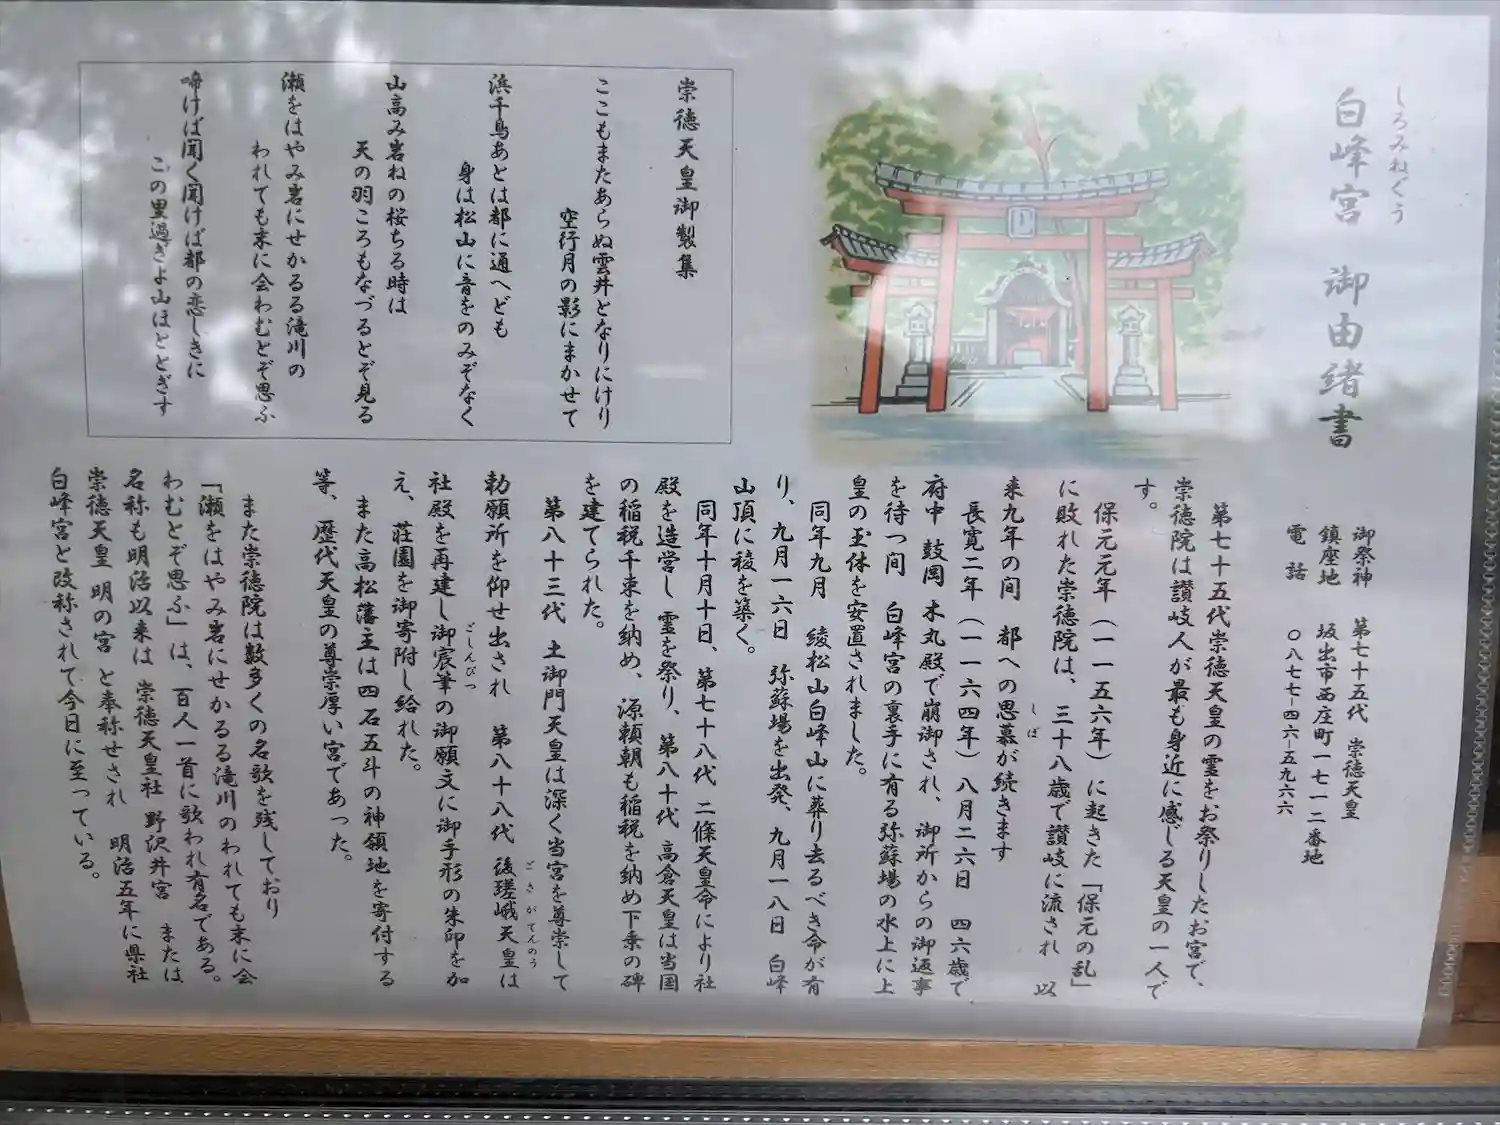 しろみねぐう
白峰宮 御由緒書
御祭神 第七十五代 崇徳天皇
鎮座地 坂出市西庄町一七一二番地
電話 〇八七七-四六-五九六六
第七十五代崇徳天皇の霊をお祭りしたお宮で、
崇徳院は讃岐人が最も身近に感じる天皇の一人で
す。
保元元年(一一五六年)に起きた「保元の乱」
に敗れた崇徳院は、三十八歳で讃岐に流され 以
来九年の間 都への思慕が続きます
しぼ
長寛二年(一一六四年)八月二六日 四六歳で
府中 鼓岡 木丸殿で崩御され、御所からの御返事
を待つ間 白峰宮の裏手に有る弥蘇場の水上に上
皇の玉体を安置されました。
同年九月 綾松山白峰山に葬り去るべき命が有
り、九月一六日 弥蘇場を出発、九月一八日 白峰
山頂に稜を築く。
同年十月十日、第七十八代 二條天皇命により社
殿を造営し 霊を祭り、第八十代 高倉天皇は当国
の稲税千束を納め、源頼朝も稲税を納め下乗の碑
を建てられた。
第八十三代 土御門天皇は深く当宮を尊崇して
勅願所を仰せ出され 第八十八代 後瑳峨天皇は
ごさがてんのう
社殿を再建し御宸筆の御願文に御手形の朱印を加
ごしんぴつ
え、荘園を御寄附し給れた。
また高松藩主は四石五斗の神領地を寄付する
等、歴代天皇の尊崇厚い宮であった。
また崇徳院は数多くの名歌を残しており
「瀬をはやみ岩にせかるる滝川のわれても末に会
わむとぞ思ふ」は、百人一首に歌われ有名である。
名称も明治以来は 崇徳天皇社 野沢井宮 または
崇徳天皇 明の宮 と奉称せされ 明治五年に県社
白峰宮と改称されて今日に至っている。
崇徳天皇御製集
ここもまたあらぬ雲井となりにけり
空行月の影にまかせて
浜千鳥あとは都に通へども
身は松山に音をのみぞなく
山高み岩ねの桜ちる時は
天の羽ころもなづるとぞ見る
瀬をはやみ岩にせかるる滝川の
われても末に会わむとぞ思ふ
啼けば聞く聞けば都の恋しきに
この里過ぎよ山ほととぎす